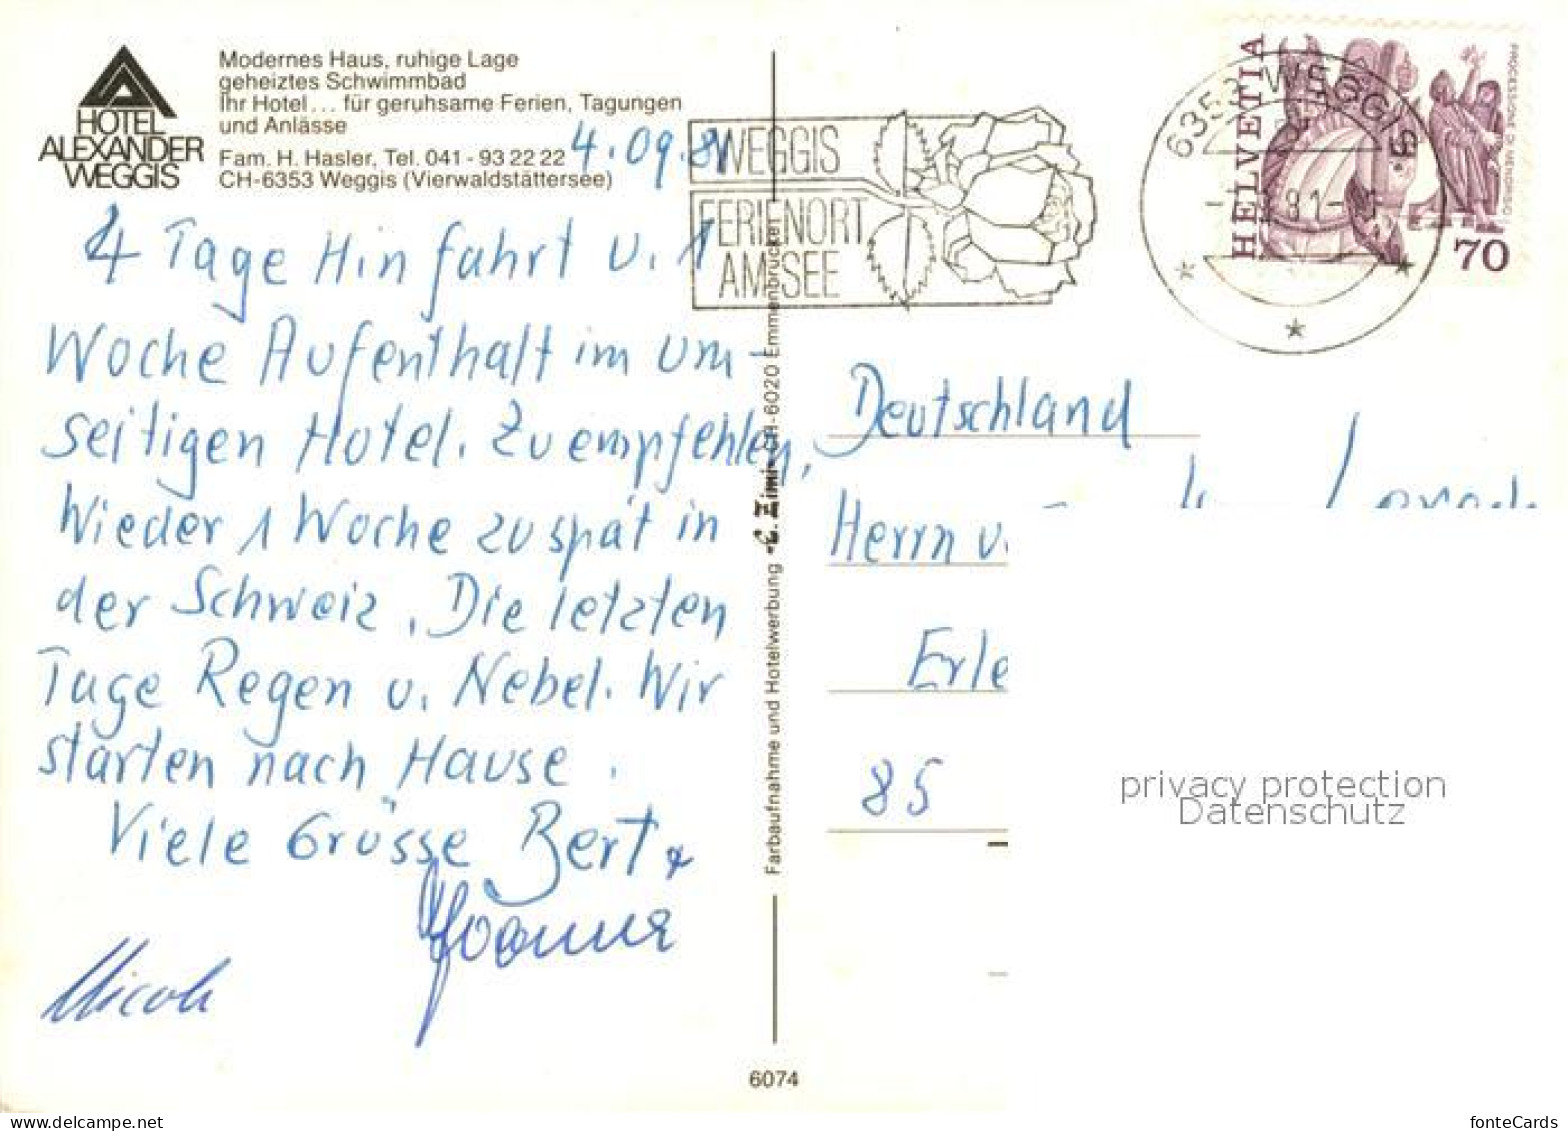 HOTEL
ALEXANDER
WEGGIS
Modernes Haus, ruhige Lage
geheiztes Schwimmbad
Ihr Hotel... für geruhsame Ferien, Tagungen
und Anlässe
Fam. H. Hasler, Tel. 041 - 93 22 22
CH-6353 Weggis (Vierwaldstättersee)
4.09.81
4 Tage Hinfahrt u. 1
Woche Aufenthalt im um-
seitigen Hotel. Zu empfehlen,
Wieder 1 Woche zu spät in
der Schweiz. Die letzten
Tage Regen u. Nebel. Wir
starten nach Hause.
Viele Grüsse Bert &
Joanna
Nicole
WEGGIS
FERIENORT
AM SEE
6353 WEGGIS
HELVETIA
PROCESSIONE DI MENDRISIO
70
Farbaufnahme und Hotelwerbung CH-6020 Emmenbrücke
Deutschland
Herrn u.
Erle
85
6074
privacy protection
Datenschutz
www.delcampe.net
fonteCards